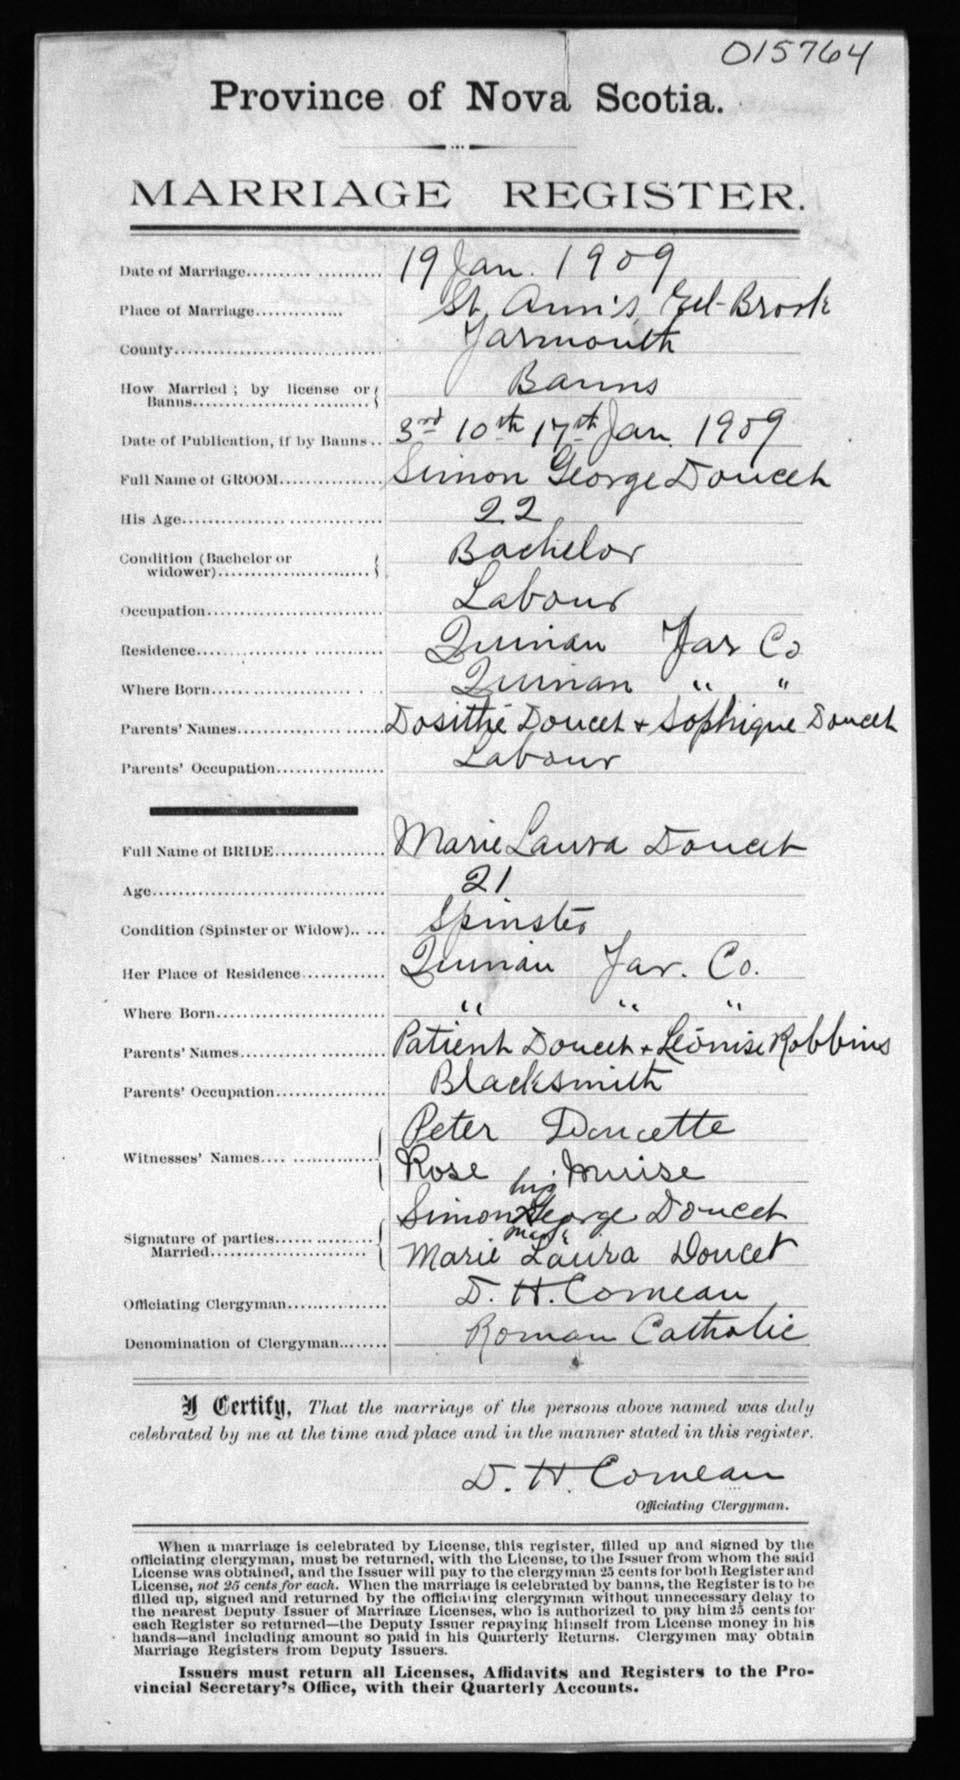 015764
Province of Nova Scotia.
MARRIAGE REGISTER.
Date of Marriage.................... 19 Jan. 1909
Place of Marriage............. St. Ann's, Eel-Brook
County............................... Yarmouth
How Married ; by license or
Banns........................ Banns
Date of Publication, if by Banns.. 3rd 10th 17th Jan. 1909
Full Name of GROOM............... Simon George Doucet
His Age............................. 22
Condition (Bachelor or
widower)....................... Bachelor
Occupation.......................... Labour
Residence.......................... Quinan Yar Co
Where Born........................ Quinan " "
Parents' Names..................... Dosithé Doucet + Sophique Doucet
Parents' Occupation................ Labour
Full Name of BRIDE................ Marie Laura Doucet
Age.................................. 21
Condition (Spinster or Widow)..... Spinster
Her Place of Residence............ Quinan Yar. Co.
Where Born........................ " " "
Parents' Names..................... Patient Doucet + Léonise Robbins
Parents' Occupation................ Blacksmith
Witnesses' Names.................. Peter Doucette
Rose Muise
his
Signature of parties............... Simon X George Doucet
mark
Married........................ Marie Laura Doucet
Officiating Clergyman............... D. H. Comeau
Denomination of Clergyman........ Roman Catholic
I Certify, That the marriage of the persons above named was duly
celebrated by me at the time and place and in the manner stated in this register.
D. H. Comeau
Officiating Clergyman.
When a marriage is celebrated by License, this register, filled up and signed by the
officiating clergyman, must be returned, with the License, to the Issuer from whom the said
License was obtained, and the Issuer will pay to the clergyman 25 cents for both Register and
License, not 25 cents for each. When the marriage is celebrated by banns, the Register is to be
filled up, signed and returned by the officiating clergyman without unnecessary delay to
the nearest Deputy Issuer of Marriage Licenses, who is authorized to pay him 25 cents for
each Register so returned—the Deputy Issuer repaying himself from License money in his
hands—and including amount so paid in his Quarterly Returns. Clergymen may obtain
Marriage Registers from Deputy Issuers.
Issuers must return all Licenses, Affidavits and Registers to the Pro-
vincial Secretary's Office, with their Quarterly Accounts.